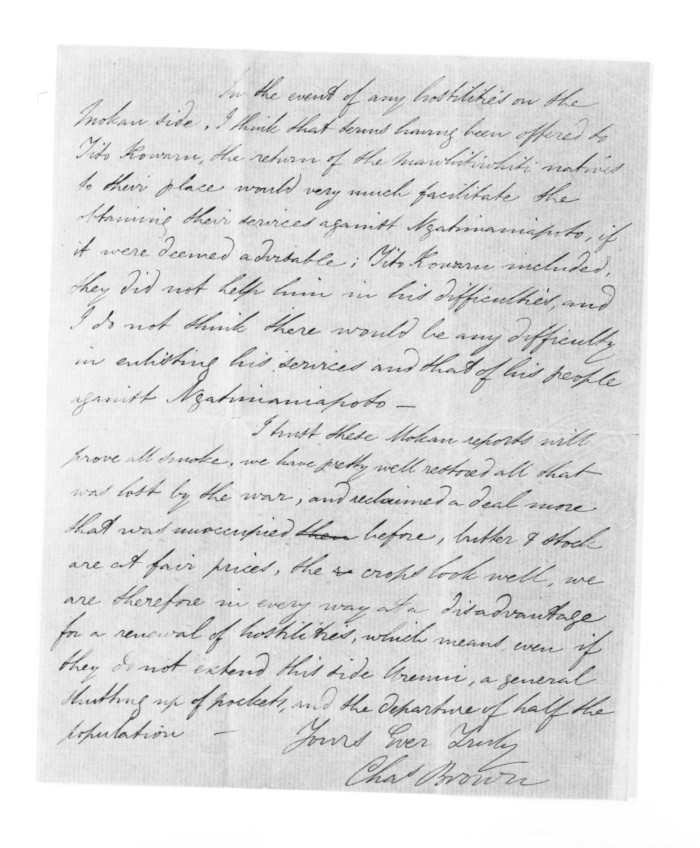 In the event of any hostilities on the
Mokau side, I think that terms having been offered to
Tito Kowaru, the return of the Mawhitiwhiti natives
to their place would very much facilitate the
obtaining their services against Ngatimaniapoto, if
it were deemed advisable; Tito Kowaru included,
they did not help him in his difficulties, and
I do not think there would be any difficulty
in enlisting his services and that of his people
against Ngatimaniapoto —
I trust these Mokau reports will
prove all smoke, we have pretty well restored all that
was lost by the war, and reclaimed a deal more
that was unoccupied then before, butter & stock
are at fair prices, the crops look well, we
are therefore in every way at a disadvantage
for a renewal of hostilities, which means, even if
they do not extend this side Urenui, a general
shutting up of pockets, and the departure of half the
population —
Yours Ever Truly
Chas Brown